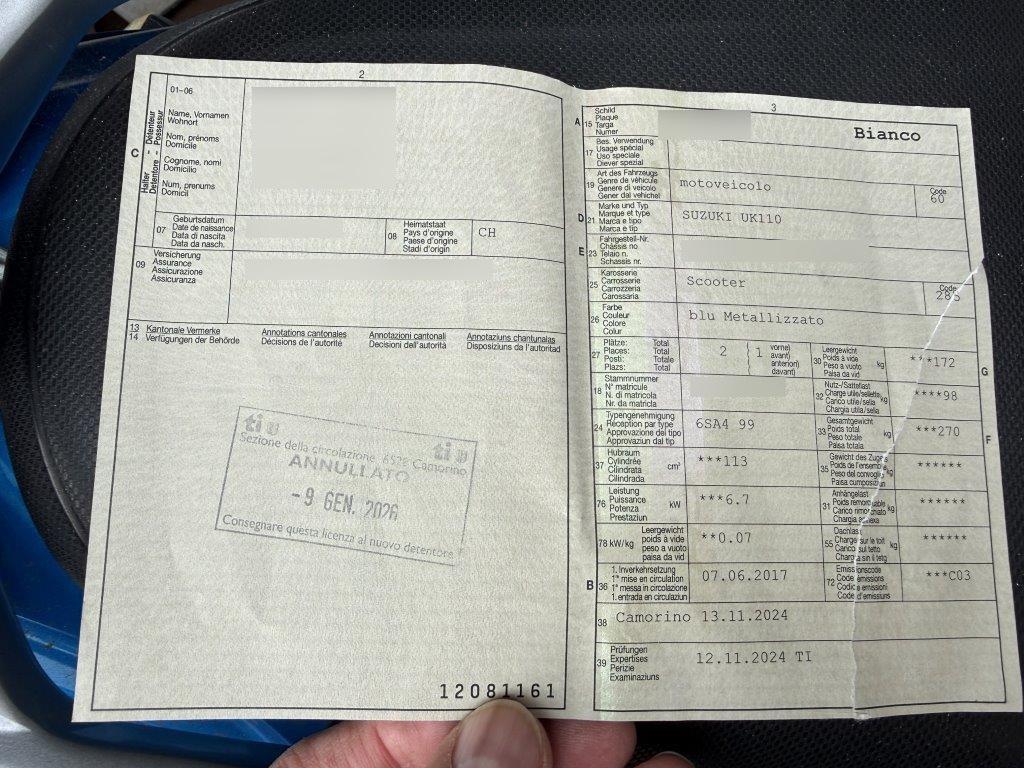 2
01–06
Name, Vornamen
Wohnort
Nom, prénoms
Domicile
Cognome, nomi
Domicilio
Num, prenums
Domicil
C
Halter - Détenteur
Detentore - Possessur
07
Geburtsdatum
Date de naissance
Data di nascita
Data da nasch.
08
Heimatstaat
Pays d'origine
Paese d'origine
Stadi d'origin
CH
09
Versicherung
Assurance
Assicurazione
Assicuranza
13
14
Kantonale Vermerke
Verfügungen der Behörde
Annotations cantonales
Décisions de l'autorité
Annotazioni cantonali
Decisioni dell'autorità
Annotaziuns chantunalas
Disposiziuns da l'autoritad
ti
ti
Sezione della circolazione 6528 Camorino
ANNULLATO
-9 GEN. 2026
Consegnare questa licenza al nuovo detentore
12081161
3
A
15
Schild
Plaque
Targa
Numer
Bianco
17
Bes. Verwendung
Usage spécial
Uso speciale
Diever spezial
19
Art des Fahrzeugs
Genre de véhicule
Genere di veicolo
Gener dal vehichel
motoveicolo
Code
60
D
21
Marke und Typ
Marque et type
Marca e tipo
Marca e tip
SUZUKI UK110
E
23
Fahrgestell-Nr.
Châssis no
Telaio n.
Schassis nr.
25
Karosserie
Carrosserie
Carrozzeria
Carossaria
Scooter
Code
285
26
Farbe
Couleur
Colore
Colur
blu Metallizzato
27
Plätze: Total
Places: Total
Posti: Totale
Plazs: Total
2
1
vorne)
avant)
anteriori)
davant)
30
Leergewicht
Poids à vide
Peso a vuoto
Paisa da vid
kg
***172
G
18
Stammnummer
N° matricule
N. di matricola
Nr. da matricla
32
Nutz-/Sattellast
Charge utile/sellette
Carico utile/sella
Chargia utila/sella
kg
****98
24
Typengenehmigung
Réception par type
Approvazione del tipo
Approvaziun dal tip
6SA4 99
33
Gesamtgewicht
Poids total
Peso totale
Paisa totala
kg
***270
F
37
Hubraum
Cylindrée
Cilindrata
Cilindrada
cm³
***113
35
Gewicht des Zuges
Poids de l'ensemble
Peso del convoglio
Paisa cumposiziun
kg
******
76
Leistung
Puissance
Potenza
Prestaziun
kW
***6.7
31
Anhängelast
Poids remorquable
Carico rimorchiato
Chargia annexa
kg
******
78 kW/kg
Leergewicht
poids à vide
peso a vuoto
paisa da vid
**0.07
55
Dachlast
Charge sur le toit
Carico sul tetto
Chargia sin il tetg
kg
******
B
36
1. Inverkehrsetzung
1re mise en circulation
1a messa in circolazione
1. entrada en circulaziun
07.06.2017
72
Emissionscode
Code émissions
Codice emissioni
Code d'emissiuns
***C03
38
Camorino 13.11.2024
39
Prüfungen
Expertises
Perizie
Examinaziuns
12.11.2024 TI